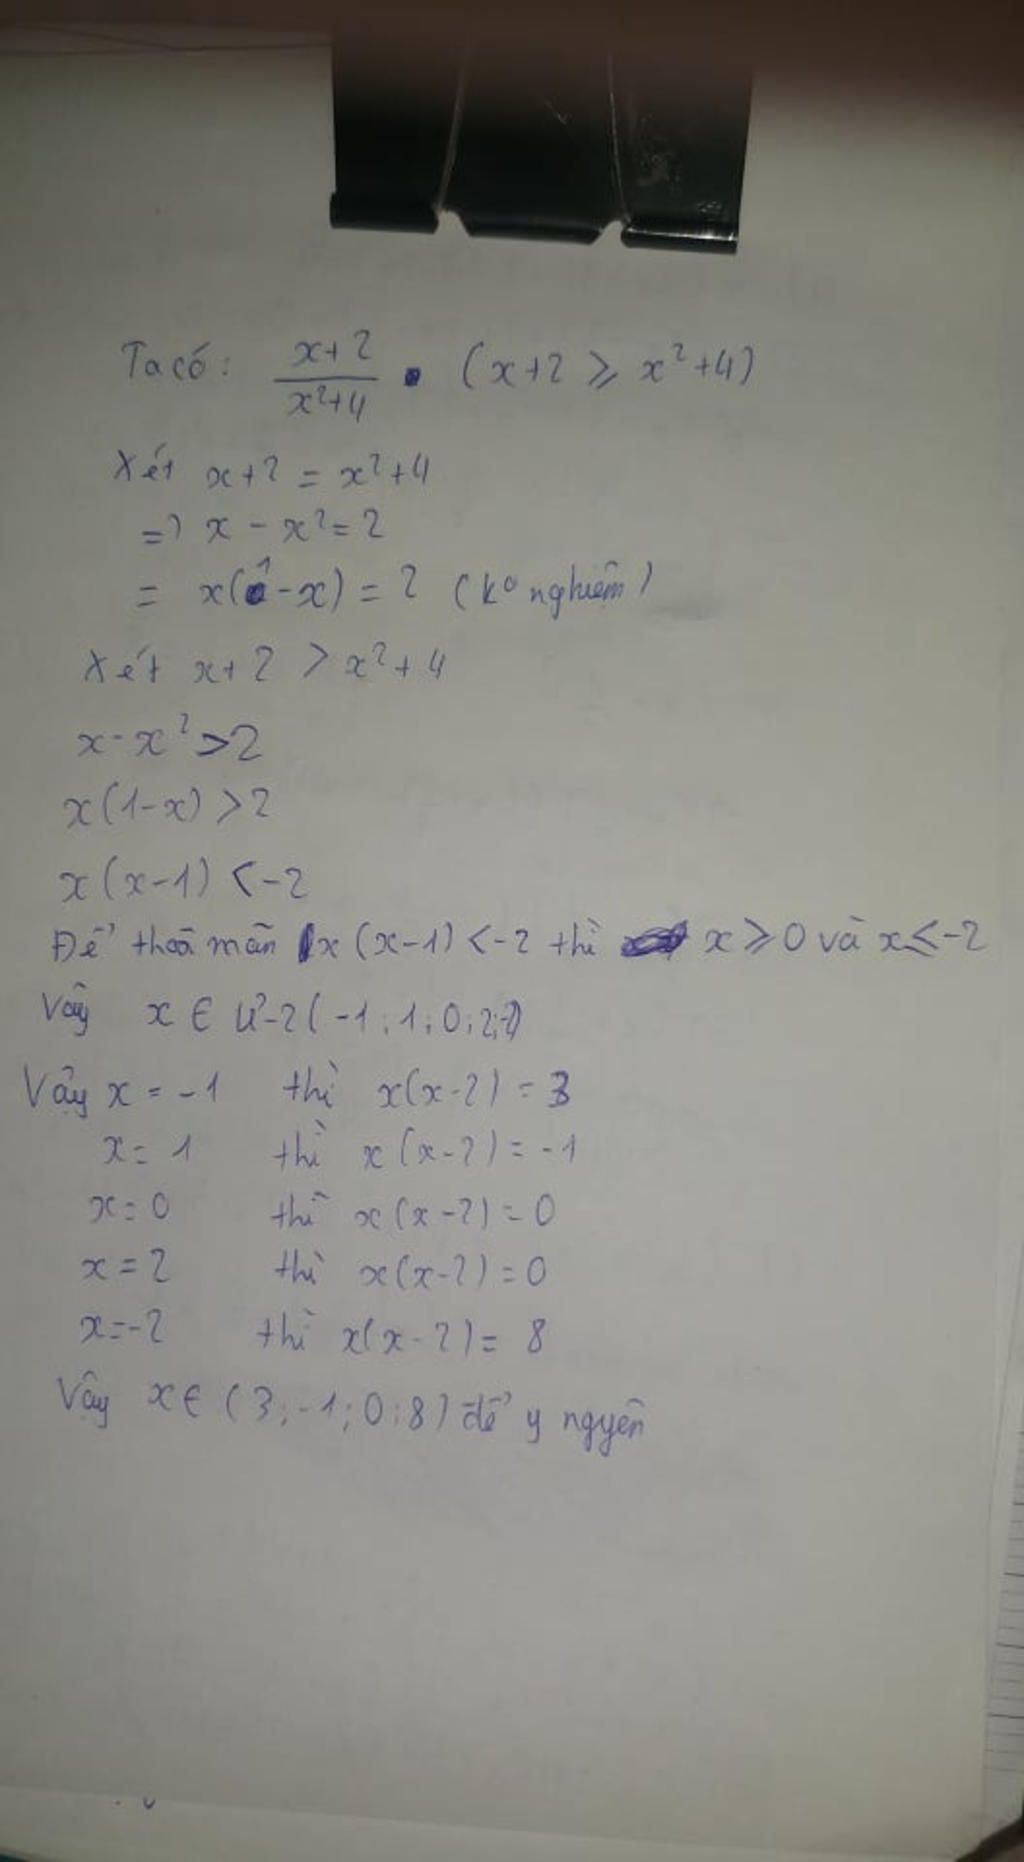 Ta có: x+2 / x²+4 (x+2 ≥ x²+4)
Xét x+2 = x²+4
=> x - x² = 2
= x(1-x) = 2 (k⁰ nghiệm)
Xét x+2 > x²+4
x - x² > 2
x(1-x) > 2
x(x-1) < -2
Để thoã mãn x(x-1) < -2 thì x ≥ 0 và x ≤ -2
Vậy x ∈ Ư-2(-1;1;0;2;-2)
Vậy x = -1 thì x(x-2) = 3
x = 1 thì x(x-2) = -1
x = 0 thì x(x-2) = 0
x = 2 thì x(x-2) = 0
x = -2 thì x(x-2) = 8
Vậy x ∈ (3;-1;0;8) để y ngyên